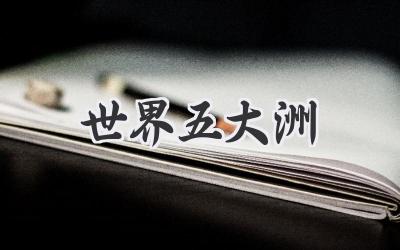 世界五大洲